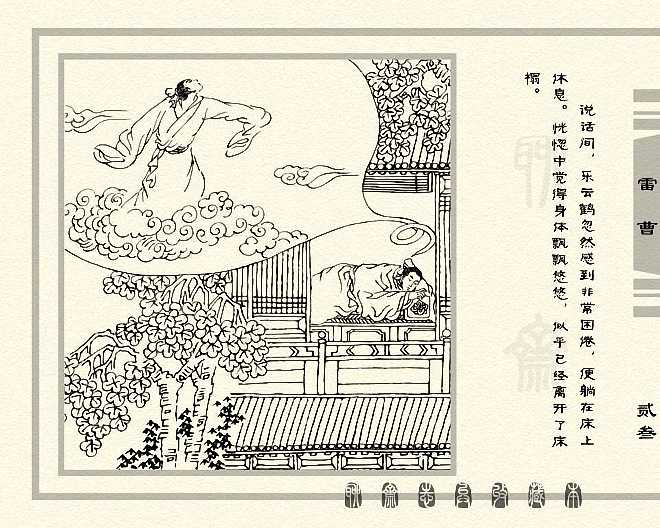 说话间，乐云鹤忽然感到非常困倦，便躺在床上
休息。恍惚中觉得身体飘飘悠悠，似乎已经离开了床
榻。
雷曹
贰叁
聊斋志异收藏本